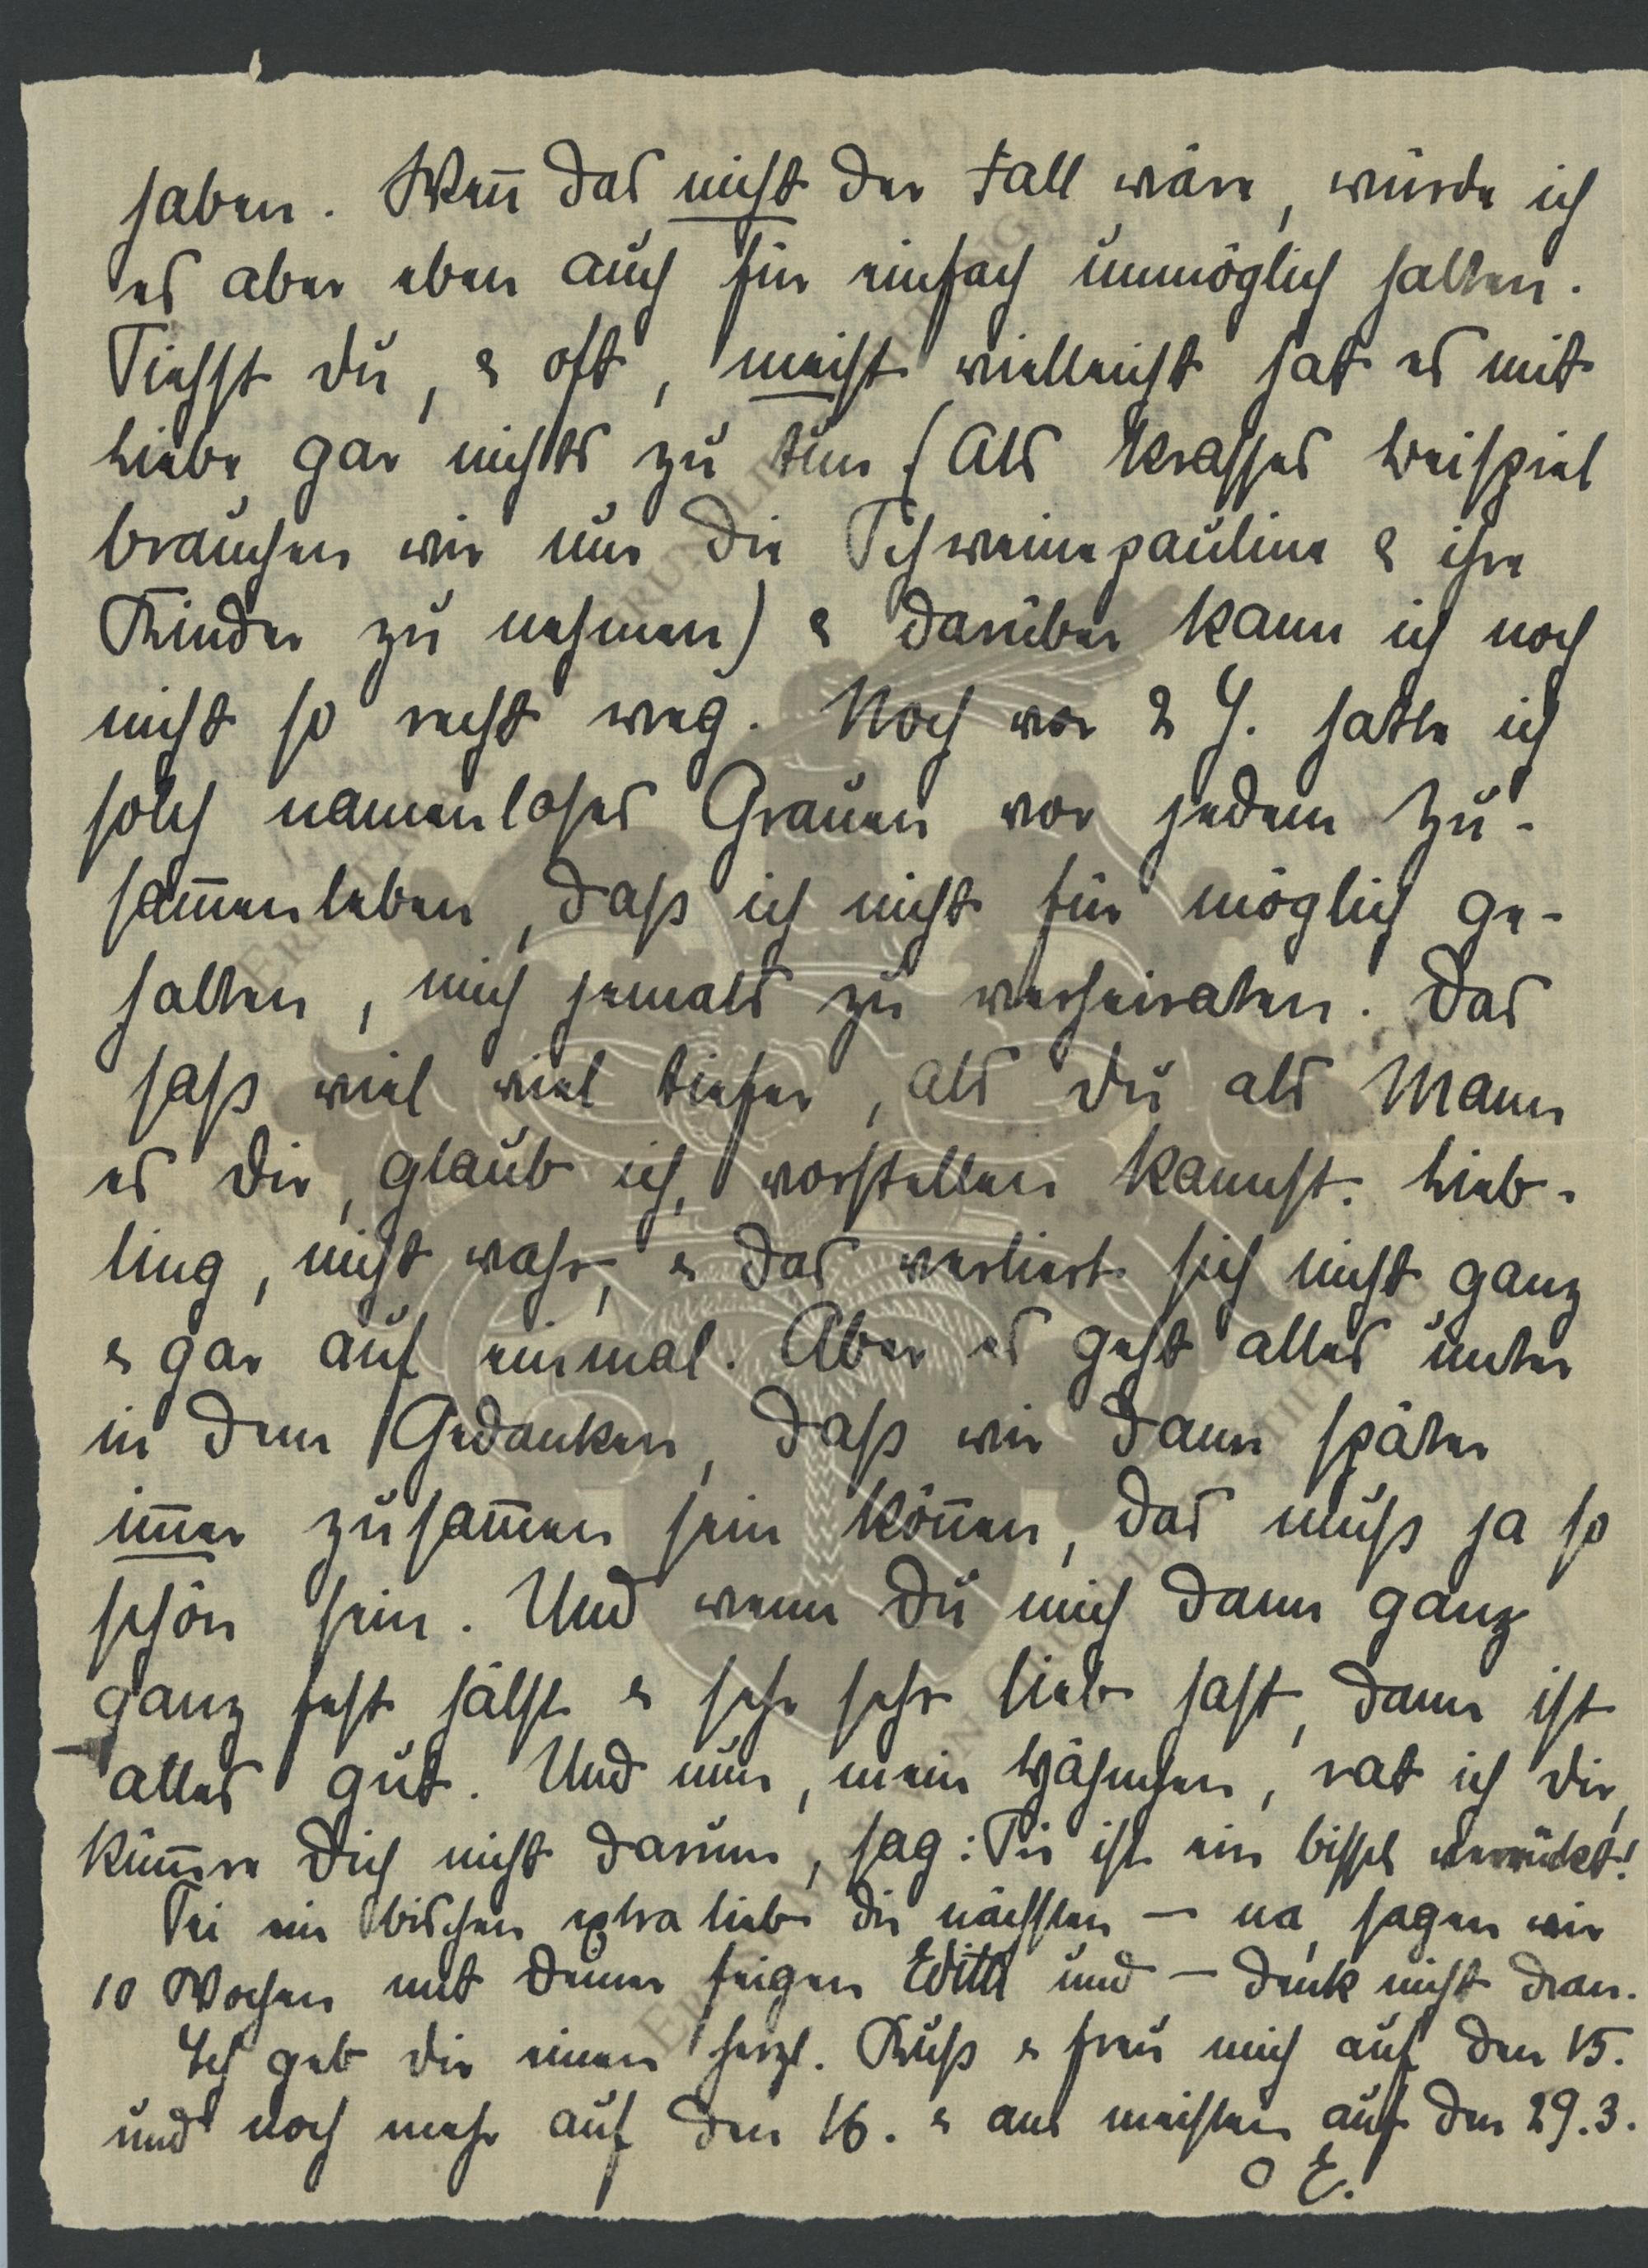 haben. Weñ das nicht der Fall wäre, würde ich
es aber eben auch für einfach unmöglich halten.
Siehst Du, & oft, meist vielleicht hat es mit
Liebe gar nichts zu tun (Als krasses Beispiel
brauchen wir nur die Schweinepauline & ihre
Kinder zu nehmen) & darüber kann ich noch
nicht so recht weg. Noch vor 2 J. hatte ich
solch namenloses Grauen vor jedem Zu-
sam̄enleben, daß ich nicht für möglich ge-
halten, mich jemals zu verheiraten. Das
saß viel viel tiefer, als Du als Mann
es Dir, glaub ich, vorstellen kannst. Lieb-
ling, nicht wahr, & das verliert sich nicht ganz
& gar auf einmal. Aber es geht alles unter
in dem Gedanken, daß wir dann später
im̄er zusam̄en sein köñen, das muß ja so
schön sein. Und wenn Du mich dann ganz
ganz fest hälst & sehr sehr lieb hast, dann ist
alles gut. Und nun, mein, rat ich Dir,
küm̄re Dich nicht darum, sag: Sie ist ein bissel verrückt!
Sei ein bischen extra lieb die nächsten — na, sagen wir
10 Wochen mit Deiner feigen Edith und — denk nicht dran.
Ich geb Dir einen herzl. Kuß & freu mich auf den 15.
und noch mehr auf den 16. & am meisten auf den 29.3.
E.